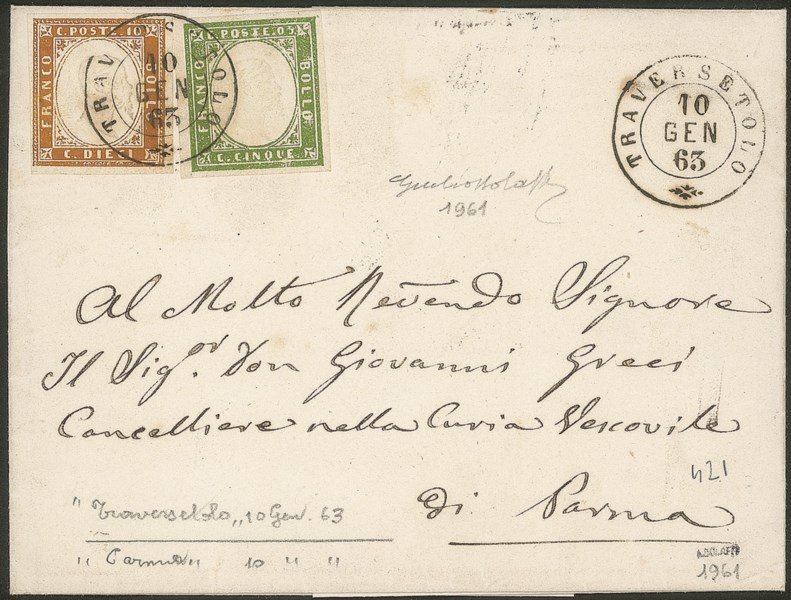 C. POSTE 10
FRANCO
BOLLO
C. DIECI
C. POSTE 05
FRANCO
BOLLO
C. CINQUE
TRAVERSETOLO
10
GEN
63
TRAVERSETOLO
10
GEN
63
1961
Al Molto Revendo Signore
Il Sigor. Don Giovanni Greci
Cancelliere nella Curia Vescovile
di Parma
421
" Traversetolo „ 10 Gen. 63
" Parma " 10 " "
1961